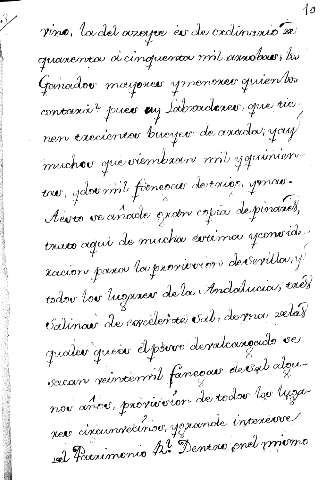 10
vino, la del azeyte es de ordinario de
quarenta à cinquenta mil arrobas, los
Ganados mayores y menores quien los
contará? pues ay labradores, que tie
nen trecientos bueyes de arada, y ay
muchos que siembran mil y quinien
tas, y dos mil fanegas de trigo, y mas.
A esto se añade gran copia de pinares,
fruto aqui de mucha estima y conside
racion para la provision de Sevilla, y
todos los lugares de la Andalucia, tres
Salinas de excelente sal, de una de las
quales que es el pozo descalçado se
sacan veinte mil fanegas de sal algu-
nos años, provision de todos los luga-
res circunvecinos, y grande interesse
del Patrimonio Rl. Dentro en el mismo